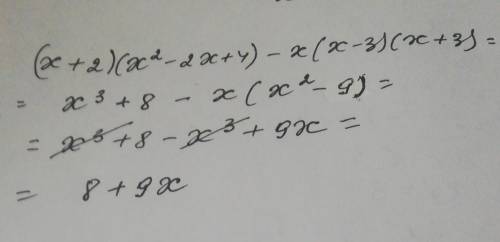 (x+2)(x²-2x+4) - x(x-3)(x+3) =
= x³ + 8 - x(x² - 9) =
= x³ + 8 - x³ + 9x =
= 8 + 9x